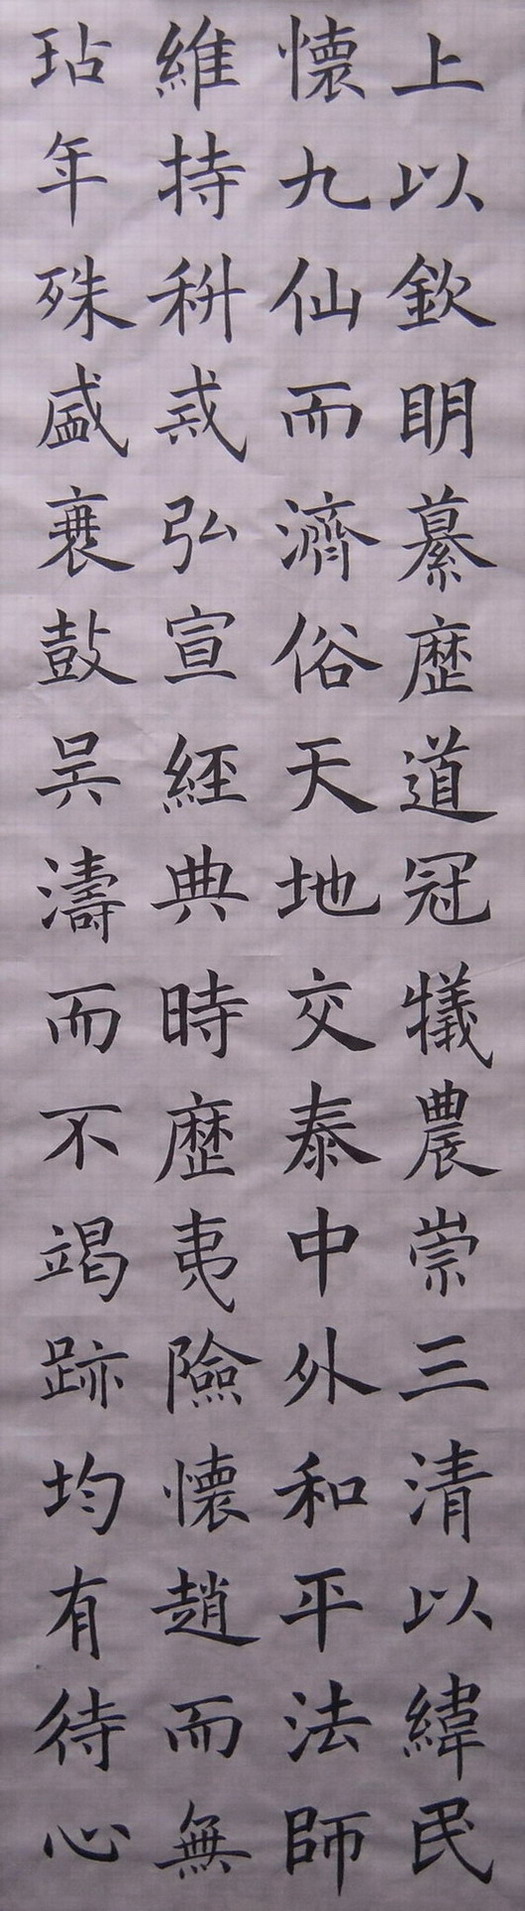 上以欽明纂歷道冠犧農崇三清以緯民
懷九仙而濟俗天地交泰中外和平法師
維持科戒弘宣經典時歷夷險懷趙而無
玷年殊盛衰鼓吳濤而不竭跡均有待心